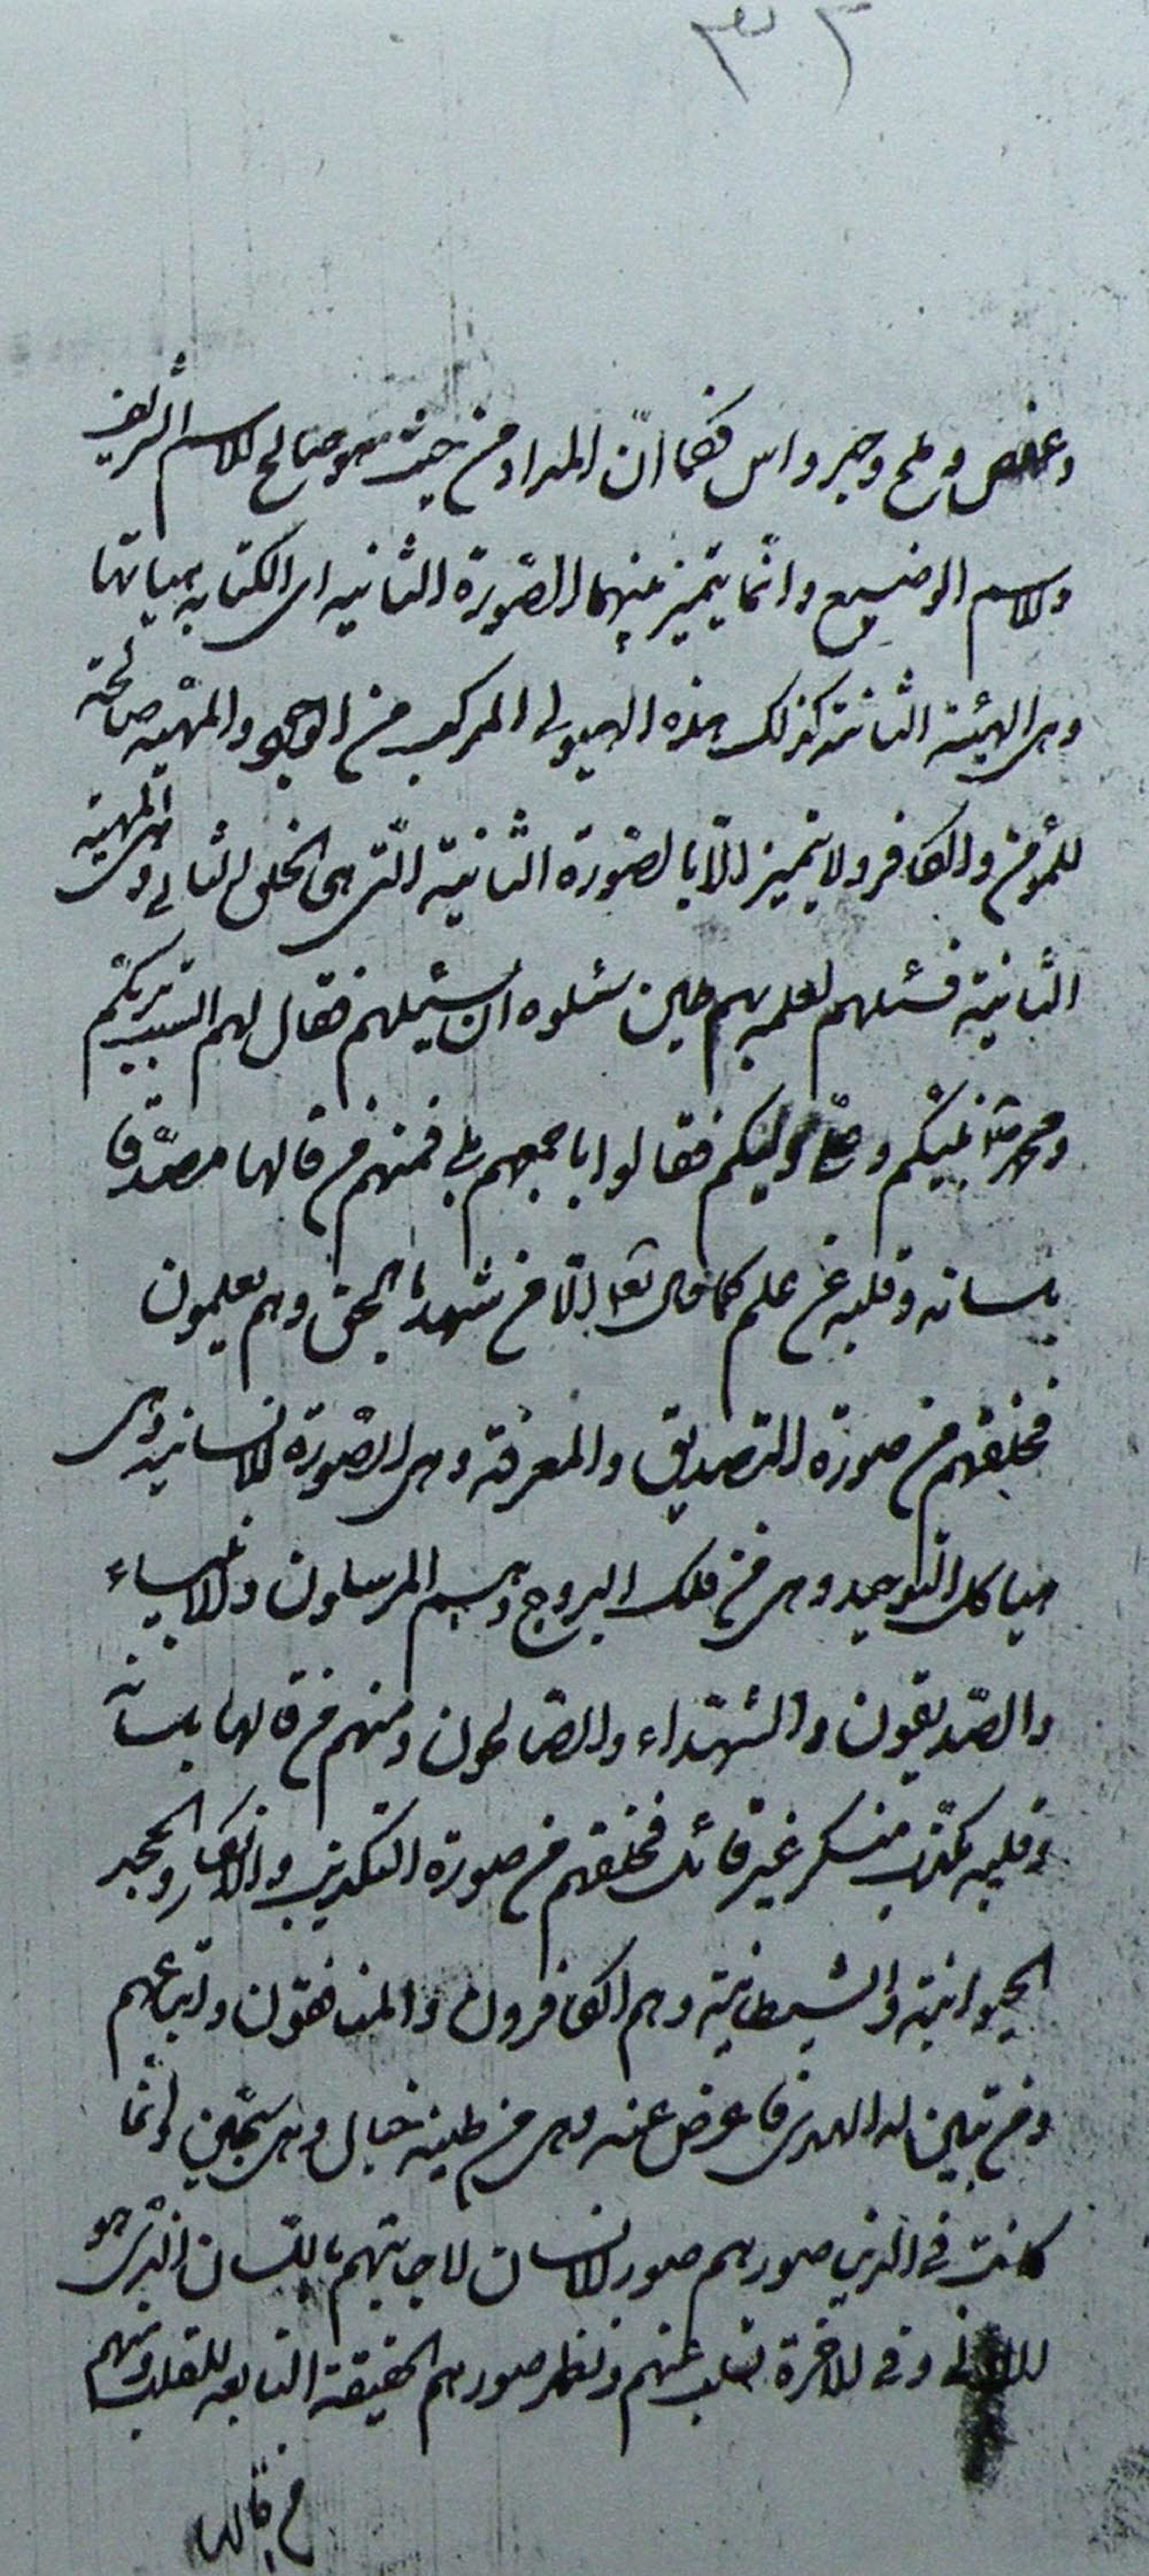 ٣٢
وعفص وملح وصبر واس فكما انّ المداد من حيث هو صالح للاسم الشريف
والاسم الوضيع وانّما يتميز منهما الصّورة الثانيه اى الكتابه بهيأتها
وهى الهيئة الثانية كذلك هذه الهيولى المركب من الوجود والمهيّه صالحة
للمؤمن والكافر ولا يتميز الّا بالصّورة الثانية الّتى هى الخلق الثانى وهى المهيّه
الثّانية فسئلهم لعلمه بهم حين سئلوه ان يسئلهم فقال لهم الست بربّكم
ومحمّد نبيّكم وعلىّ وليّكم فقالوا باجمعهم بلى فمنهم من قالها مصدّقا
بلسانه وقلبه عن علم كما قال تعالى الّا من شهد بالحق وهم يعلمون
فخلقهم من صورة التصديق والمعرفة وهى الصّورة الانسانيه وهى
هياكل التّوحيد وهى من فلك البروج وهم المرسلون والانبياء
والصّديقون والشّهداء والصّالحون ومنهم من قالها بلسانه
وقلبه مكذّب منكر غير قائل فخلقهم من صورة التكذيب والانكار والجحد
الحيوانيّة والشيطانيّة وهم الكافرون والمنافقون واتباعهم
ومن تبيّن له الهدى فاعرض عنه وهى من طينة خبال وهى سجّين وانّما
كانت فى الدّنيا صورهم صور الانسان لاجابتهم باللّسان الّذى هو
وفى الاخرة تسلب عنهم وتظهر صورهم الحقيقة التابعه للقلب ومنهم
من قالها